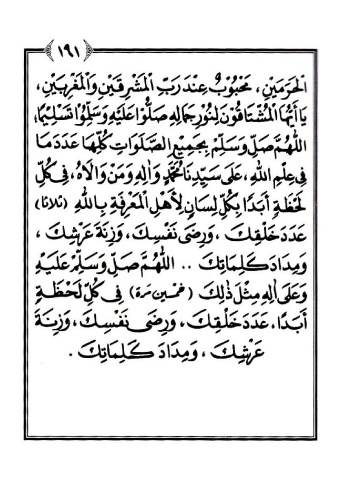 ١٩١
الْحَرَمَيْنِ ، مَحْبُوبٌ عِنْدَ رَبِّ الْمَشْرِقَيْنِ وَالْمَغْرِبَيْنِ ،
يَا أَيُّهَا الْمُشْتَاقُونَ لِنُورِ جَمَالِهِ صَلُّوا عَلَيْهِ وَسَلِّمُوا تَسْلِيمًا ،
اللَّهُمَّ صَلِّ وَسَلِّمْ بِجَمِيعِ الصَّلَوَاتِ كُلِّهَا عَدَدَ مَا
فِي عِلْمِ اللهِ ، عَلَى سَيِّدِنَا مُحَمَّدٍ وَآلِهِ وَمَنْ وَالَاهُ ، فِي كُلِّ
لَحْظَةٍ أَبَدًا بِكُلِّ لِسَانٍ لِأَهْلِ الْمَعْرِفَةِ بِاللهِ (ثلاثا)
عَدَدَ خَلْقِكَ ، وَرِضَى نَفْسِكَ ، وَزِنَةَ عَرْشِكَ ،
وَمِدَادَ كَلِمَاتِكَ .. اللَّهُمَّ صَلِّ وَسَلِّمْ عَلَيْهِ
وَعَلَى آلِهِ مِثْلَ ذٰلِكَ (خمسين مرة) فِي كُلِّ لَحْظَةٍ
أَبَدًا ، عَدَدَ خَلْقِكَ ، وَرِضَى نَفْسِكَ ، وَزِنَةَ
عَرْشِكَ ، وَمِدَادَ كَلِمَاتِكَ .